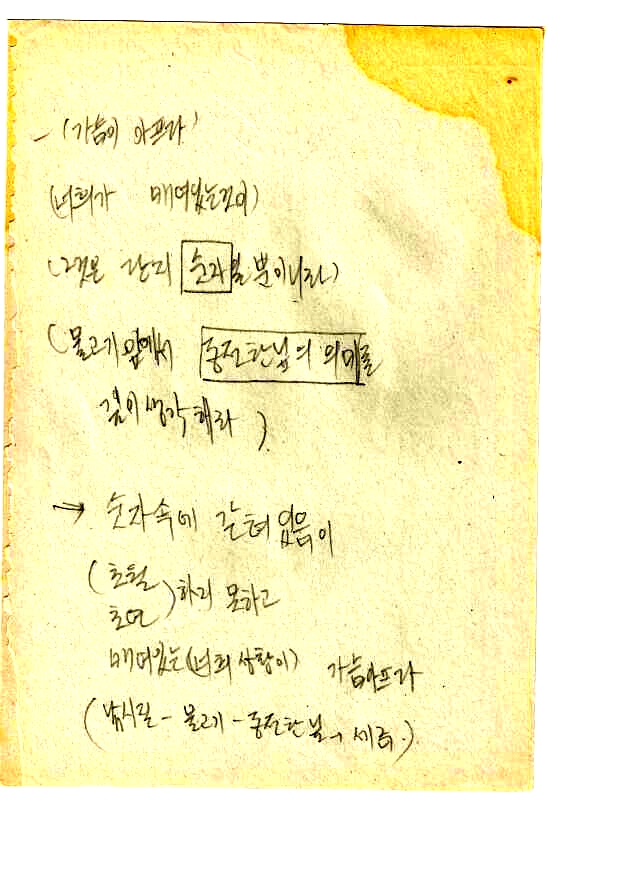 - (가슴이 아프다)
(너희가 매여있는것이)
(그것은 단지 숫자일뿐이니라)
(물고기 앞에서 동전한닢의 의미를
깊이 생각해라)
→ 숫자속에 갇혀있음이
(초월
초연) 하지 못하고
매여있는 (너희 상황이) 가슴아프다
(낚시질 - 물고기 - 동전한닢, 세금.)